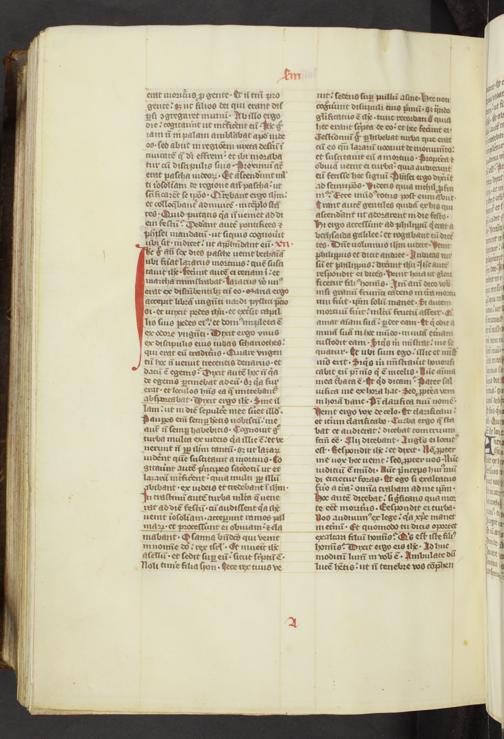 erat moritur᷒ ꝑ gente. Et nō tm̄ pro
gente: sꝫ ut filios dei qui erant disꝑ
si ꝯgregaret in unū. Ab illo ergo
die: cogitauerūt ut interficerēt eū. Ihc ḡ
iam nō in palam ambulabat apđ iude
os. sed abiit in regionem iuxta desertū i
ciuitatē q̄ dr̄ effrem. et ibi moraba
tur cū discipulis suis. Proximū aūt
erat pascha iudeoꝝ. Et ascenderūt ml̓
ti ierosolimam de regione añ pascha: ut
sc̄ificarēt se ip̄os. Querebant ergo ihm̄.
et colloquebant᷑ adinuicē: in templo stā
tes. Quid putatis q̄a nō uenerit ad di
em festū. Dederāt aut̄ pontifices et
pharisei mandatū: ut siquis cognouīt
ubi sit. indicet: ut apprehendant eū. xii.
Ihc ḡ añ sex dies pasche uenit bethaniā
ubi fuerat lazarus mortuus: quē susci
tauit ihc. Fecerūt aut̄ ei cenam ibi. et
martha ministrabat. Lazarus uo un᷒
erat ex discūbentib᷒ cū eo. Maria ergo
accepit librā unguēti nardi pistici p̄cio
si. et unxit pedes ihu. et extersit capil
lis suis pedes ei᷒. et dom᷒ impleta ē
ex odore unguēti. Dixit ergo unus
ex discipulis eius iudas scharioth᷒:
qui erat eū traditurus. Quare unguen
tū hoc nō ueniit trecentis denariis. et
datū ē egenis. Dixit aut̄ hoc nō q̄a
de egenis ꝑtinebat ad eū. sꝫ q̄a fur
erat. et loculos hn̄s ea q̄ mittebant᷑
Dixit ergo ihc. Sine il
lam: ut in diē sepulture mee seruet illud.
Pauꝑes eñ semꝑ hēbitis uobiscū: me
aut̄ nō semꝑ habebitis. Cognouit ḡ
turba multa ex iudeis q̄a illic ē. et ue
nerunt nō ꝓpt̓ ihm̄ tantū: sꝫ ut lazarū
uiderēt quē suscitauit a mortuis. Co
gitauerūt aut̄ p̄ncipes sacerdotū ut et
lazarū int̓ficerēt: quia multi ꝓpt̓ illū
abibant ex iudeis et credebāt in ihm̄.
In crastinū aut̄ turba multa q̄ uene
rat ad diē festū: cū audissent q̄a ihc
uenit ierosolimā. acceperunt ramos pal
maꝝ. et processerūt ei obuiam. et cla
mabant. Osanna bn̄dc̄s qui uenit
in nomīe dn̄i: rex isrl̓. Et inuenit ihc
asellū. et sedit suꝑ eū: sicut sc̄ptū ē.
Noli tim̄e filia syon. Ecce rex tuus ue
nit: sedens suꝑ pullū asine. Hec non
cognouerūt discipuli eius p̄mū. sꝫ q̄ndo
glificatus ē ihc. tunc recordati sūt quia
hec erant sc̄pta de eo. et hec fecerūt ei.
Testimoniū ḡ ꝑhibebat turba que erat
cū eo q̄n lazarū uocauit de monumēto:
et suscitauit eū a mortuis. Propterea et
obuiā uenit ei turba: quia audierunt
eū fecisse hoc signū. Pharisei ergo dixerūt
ad semetip̄os. Videtis quia nichil ꝓfici
m᷒. Ecce mūd᷒ totus post eum abiit.
Erant aut̄ gentiles quidā ex hiis qui
ascenderant ut adorarent in die festo.
Hii ergo accesserūt ad philippū q̄ erat a
bethsaida galilee. et rogabant eū dicē
tes. Dn̄e uolumus ihm̄ uidere. Venit
philippus et dicit andree. Andreas rur
sū et philippus: dixerūt ihu. Ihc aut̄
respondit eis dicēs. Venit hora ut glori
ficetur fili᷒ hoīnis. Amen amē dico uob̄
nisi granū frumēti cadens in terrā mortu
um fuīt. ip̄m solū manet. Si autem
mortuū fuīt: multū fructū affert. Q̄
amat aīam suā: ꝑdet eam. Et q̄ odit a
nimā suā in hoc mūdo. in uitā et̓nam
custodit eam. Siq̄s m̄ ministrat: me se
quatur. Et ubi sum ego: illic et mīst̓
meus erit. Siq̄s m̄ ministrauīt honorifi
cabit eū pr̄ meus q̄ ē in celis. Nūc anima
mea t᷑bata ē. Et qd̓ dicam: Pater sal
uifica me ex hora hac. Sed ꝓpterea veni
in horā hanc. Pr̄ clarifica tuū nomē.
Venit ergo uox de celo. Et clarificaui:
et iterum clarificabo. Turba ergo q̄ sta
bat et audierat: dicebat tonitruum
factū eē. Alii dicebant. Angl̓s ei locut᷒
est. Respondit ihc: et dixit. Nō ꝓpter
me uox hec uenit: sed ꝓpter uos. Nūc
iudiciū ē mūdi. Nūc princeps hui᷒ mūdi
eicietur foras. Et ego si exaltatus
fuero a t̓ra: omīa traham ad me ip̄m.
Hoc aut̄ dicebat: significans qua mor
te eēt moriturus. Respondit ei turba.
Nos audiuim᷒ ex lege: q̄a xp̄c manet
in et̓nū. Et quomodo tu dicis oportet
exaltari filiū hoīnis. Q̄s est iste fili᷒
hoīnis. Dixit ergo eis ihc. Adhuc
modicū lumē in uob̄ ē. Ambulate dū
lucē hētis: ut nō tenebre vos cōprehen